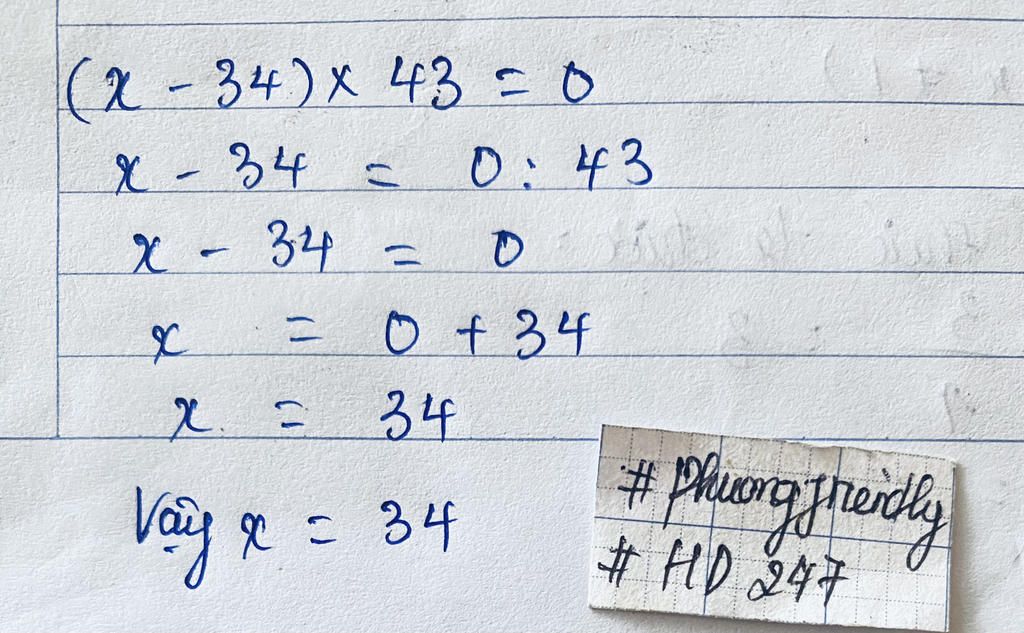 (x - 34) x 43 = 0
x - 34 = 0 : 43
x - 34 = 0
x = 0 + 34
x = 34
Vậy x = 34
# phuongfriendly
# HD 247